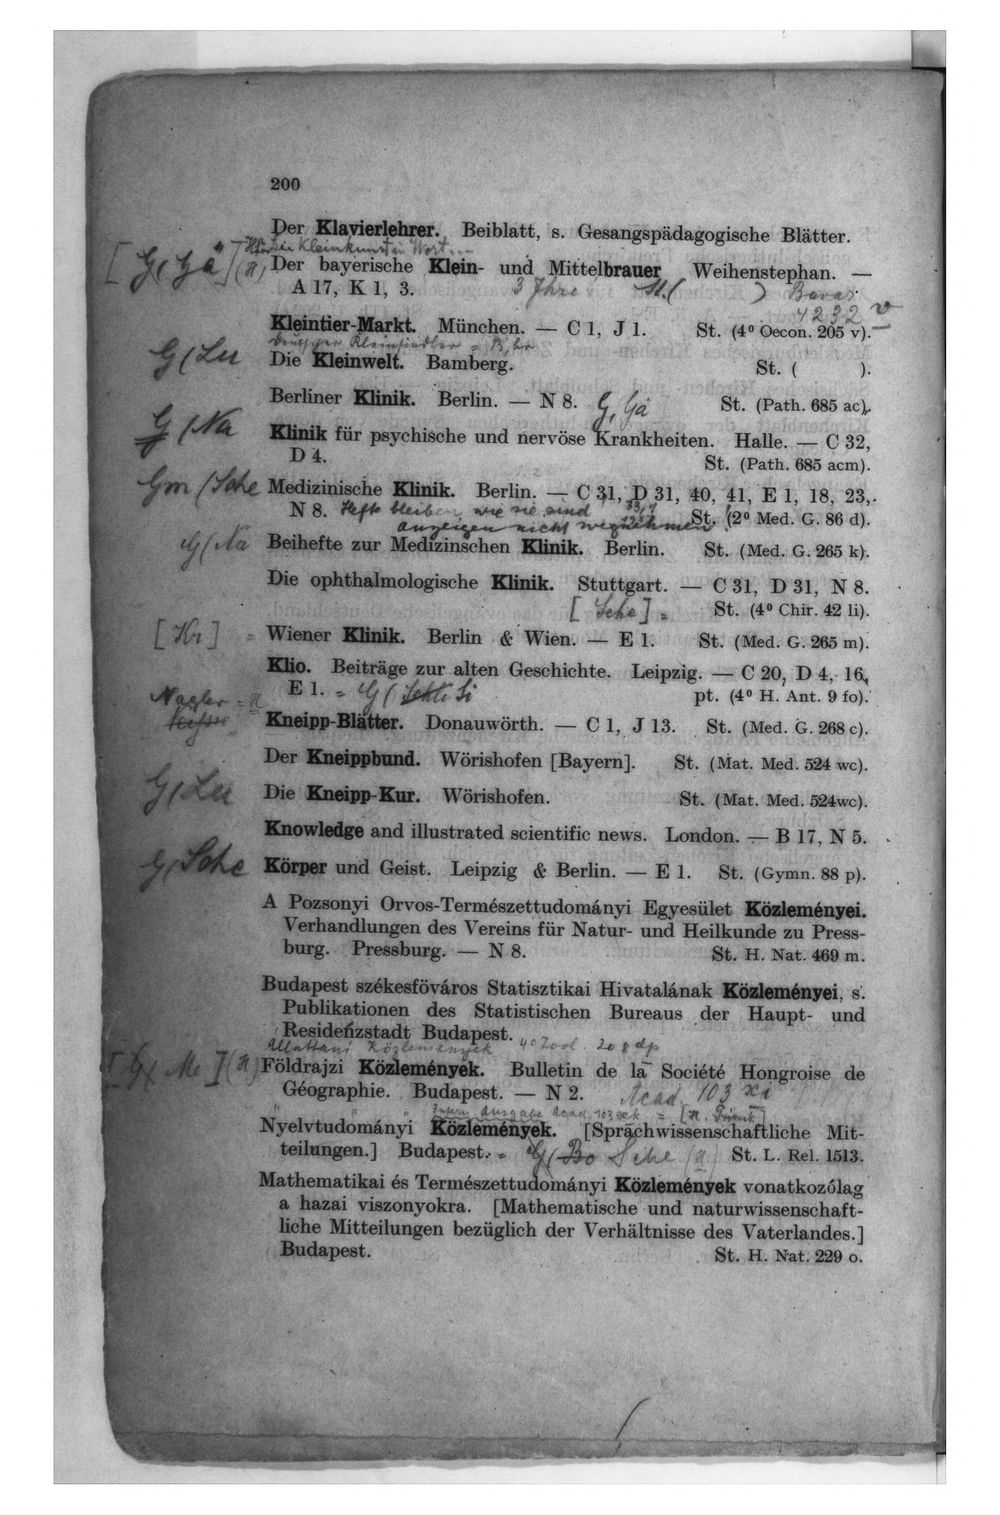 200
Der Klavierlehrer. Beiblatt, s. Gesangspädagogische Blätter.
Kleinkunst in Wort
[G(Gä](n) Der bayerische Klein- und Mittelbrauer Weihenstephan. —
A 17, K 1, 3. 3 Jhre St. ( ) Bavar.
4232 v
Kleintier-Markt. München. — C 1, J 1. St. (4⁰ Oecon. 205 v).
Deutscher Kleinsiedler =
G(Lu Die Kleinwelt. Bamberg. St. ( ).
Berliner Klinik. Berlin. — N 8. G, Gä St. (Path. 685 ac).
G(Na Klinik für psychische und nervöse Krankheiten. Halle. — C 32,
D 4. St. (Path. 685 acm).
Gm (Sche Medizinische Klinik. Berlin. — C 31, D 31, 40, 41, E 1, 18, 23,
N 8. Hefte bleiben wie sie sind St. (2⁰ Med. G. 86 d).
anzeigen nicht wegnehmen!
G(Na Beihefte zur Medizinschen Klinik. Berlin. St. (Med. G. 265 k).
Die ophthalmologische Klinik. Stuttgart. — C 31, D 31, N 8.
[Sche] = St. (4⁰ Chir. 42 li).
[Kr] = Wiener Klinik. Berlin & Wien. — E 1. St. (Med. G. 265 m).
Klio. Beiträge zur alten Geschichte. Leipzig. — C 20, D 4, 16,
E 1. = G( Si pt. (4⁰ H. Ant. 9 fo).
Nagler = n
Kneipp-Blätter. Donauwörth. — C 1, J 13. St. (Med. G. 268 c).
Der Kneippbund. Wörishofen [Bayern]. St. (Mat. Med. 524 wc).
G(Lu Die Kneipp-Kur. Wörishofen. St. (Mat. Med. 524wc).
Knowledge and illustrated scientific news. London. — B 17, N 5.
G(Sche Körper und Geist. Leipzig & Berlin. — E 1. St. (Gymn. 88 p).
A Pozsonyi Orvos-Természettudományi Egyesület Közleményei.
Verhandlungen des Vereins für Natur- und Heilkunde zu Press-
burg. Pressburg. — N 8. St. H. Nat. 469 m.
Budapest székesföváros Statisztikai Hivatalának Közleményei, s.
Publikationen des Statistischen Bureaus der Haupt- und
Residenzstadt Budapest.
Allattani Közlemények 4⁰ Zool. 208 dp
[G( Me](n) Földrajzi Közlemények. Bulletin de la Société Hongroise de
Géographie. Budapest. — N 2. Acad. 103 xi
Intern. Ausgabe Acad. 103 = [n.
Nyelvtudományi Közlemények. [Sprachwissenschaftliche Mit-
teilungen.] Budapest. = G( Bo Sche (n) St. L. Rel. 1513.
Mathematikai és Természettudományi Közlemények vonatkozólag
a hazai viszonyokra. [Mathematische und naturwissenschaft-
liche Mitteilungen bezüglich der Verhältnisse des Vaterlandes.]
Budapest. St. H. Nat. 229 o.